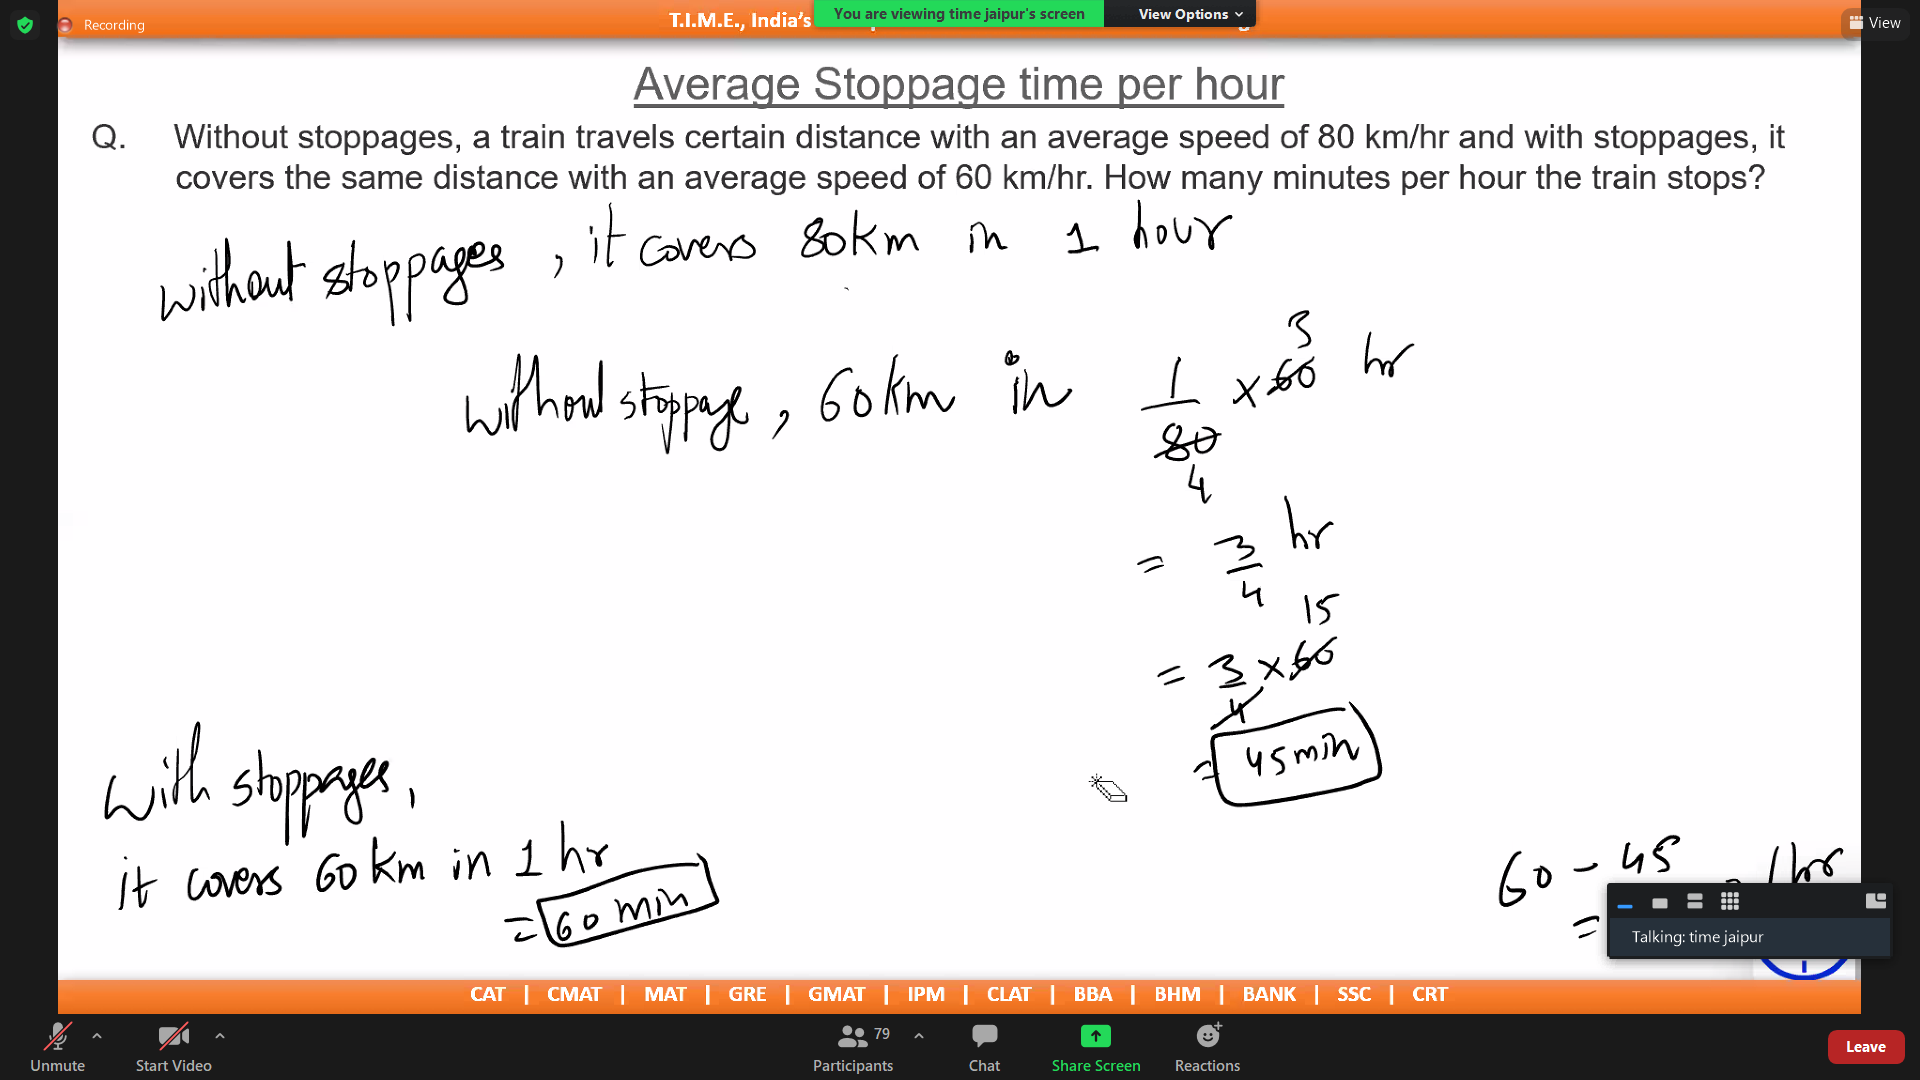 Recording
T.I.M.E., India's
You are viewing time jaipur's screen
View Options
View
Average Stoppage time per hour
Q. Without stoppages, a train travels certain distance with an average speed of 80 km/hr and with stoppages, it
covers the same distance with an average speed of 60 km/hr. How many minutes per hour the train stops?
without stoppages, it covers 80km in 1 hour
3
without stoppage, 60km in 1/80 × 60 hr
4
= 3/4 hr
15
= 3/4 × 60
= 45 min
With stoppages,
it covers 60 km in 1 hr
= 60 min
60 - 45
1hr
=
Talking: time jaipur
CAT | CMAT | MAT | GRE | GMAT | IPM | CLAT | BBA | BHM | BANK | SSC | CRT
Unmute
Start Video
79
Participants
Chat
Share Screen
Reactions
Leave